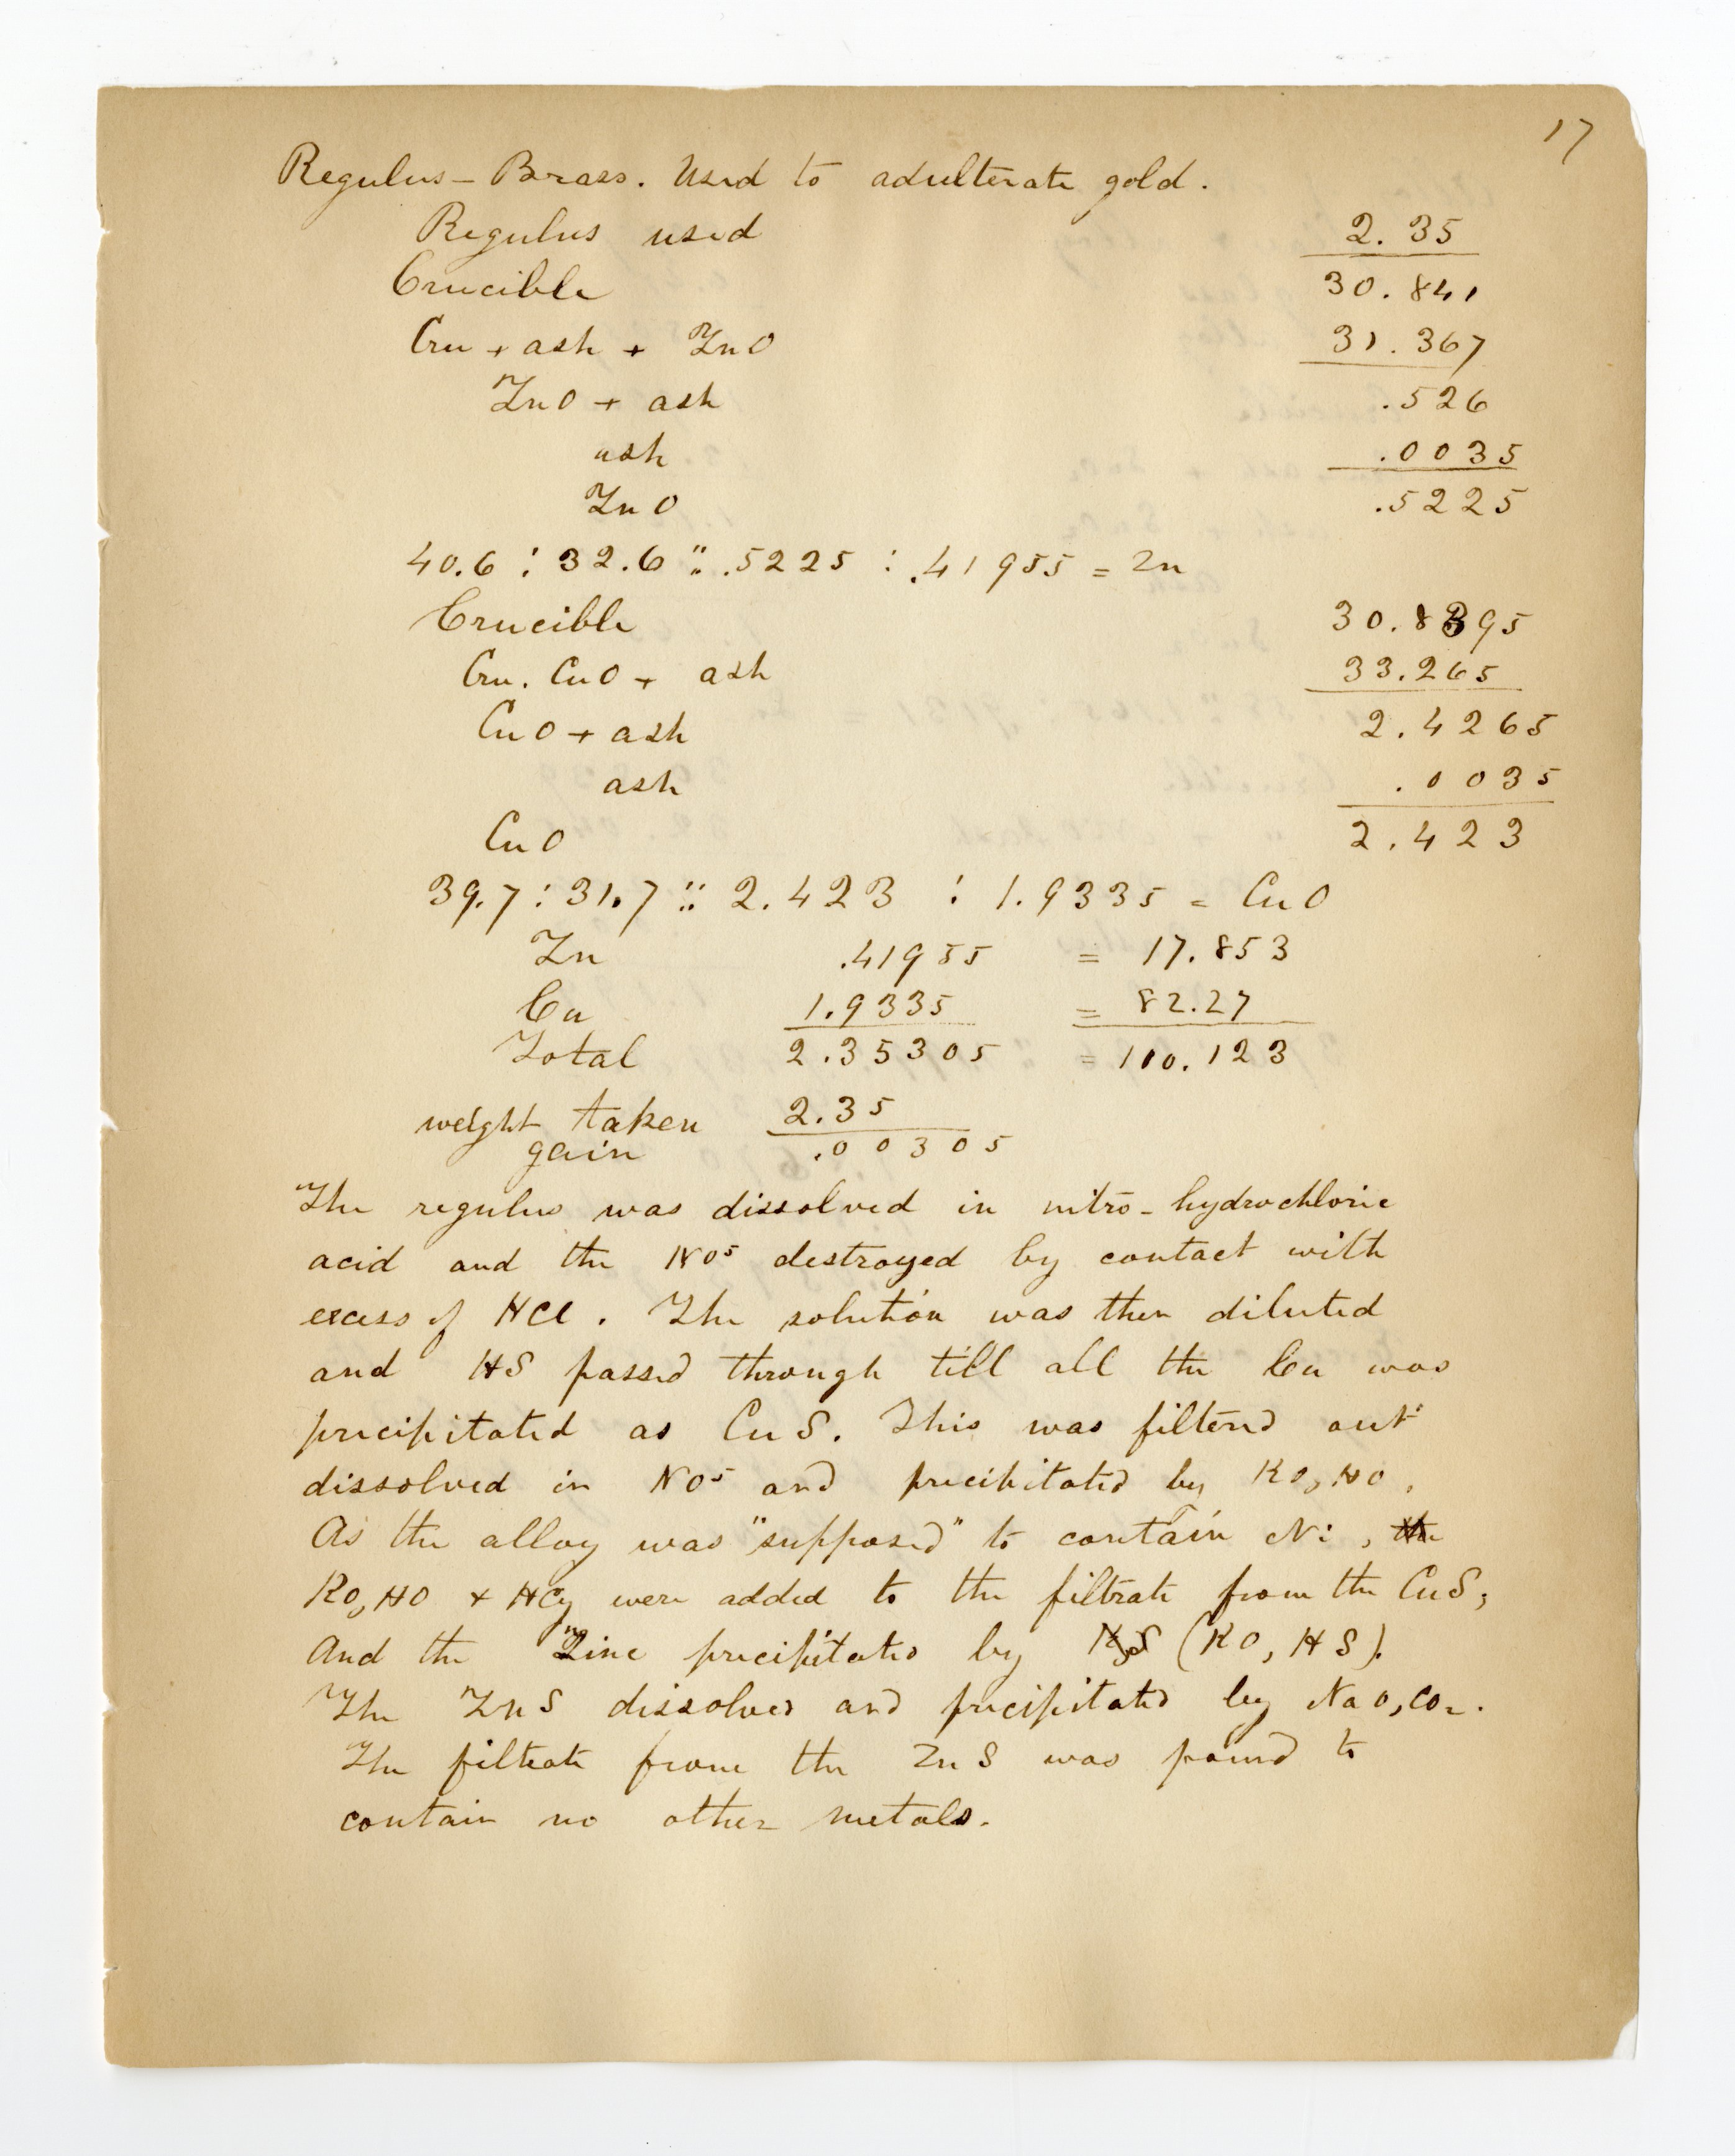 17
Regulus - Brass. Used to adulterate gold.
Regulus used 2.35
Crucible 30.841
Cru + ash + ZnO 31.367
ZnO + ash .526
ash .0035
ZnO .5225
40.6 : 32.6 :: .5225 : .41955 = Zn
Crucible 30.8395
Cru. CuO + ash 33.265
CuO + ash 2.4265
ash .0035
CuO 2.423
39.7 : 31.7 :: 2.423 : 1.9335 = CuO
Zn .41955 = 17.853
Cu 1.9335 = 82.27
Total 2.35305 = 100.123
weight taken 2.35
gain .00305
The regulus was dissolved in nitro-hydrochloric
acid and the NO⁵ destroyed by contact with
excess of HCl. The solution was then diluted
and HS passed through till all the Cu was
precipitated as CuS. This was filterd out
dissolved in NO⁵ and precipitated by KO,HO.
As the alloy was "supposed" to contain Ni, the
KO,HO + HCy were added to the filtrate from the CuS;
And the Zinc precipitated by (KO, HS).
The ZnS dissolved and precipitated by NaO,CO₂.
The filtrate from the ZnS was found to
contain no other metals.